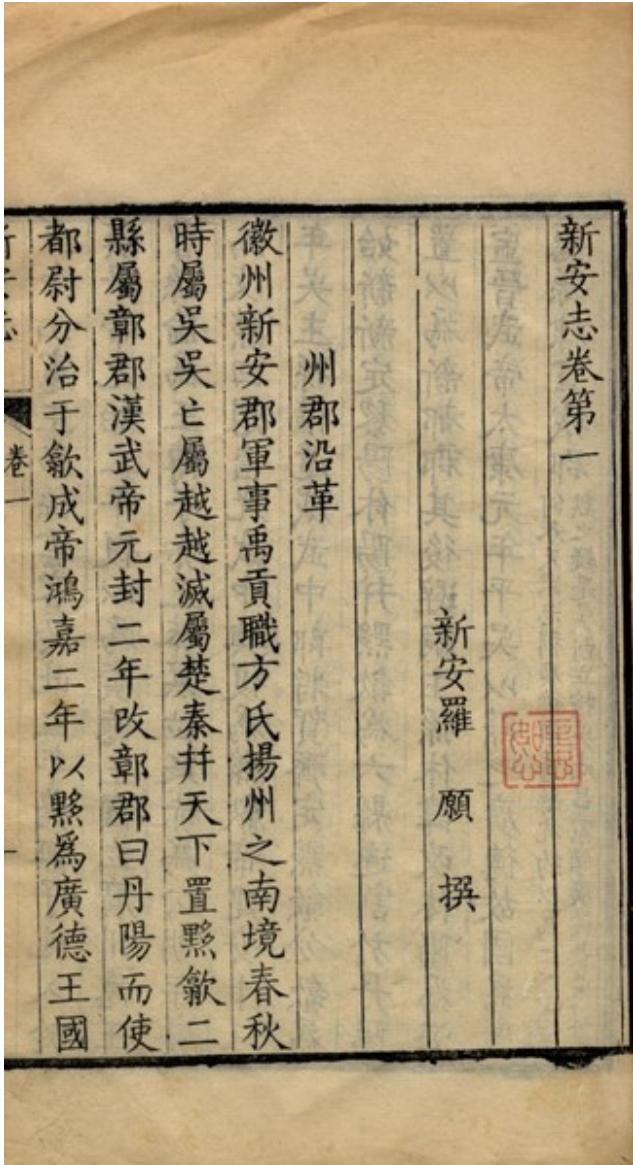 新安志卷第一
新安羅願撰
州郡沿革
徽州新安郡軍事禹貢職方氏揚州之南境春秋
時屬吳吳亡屬越越滅屬楚秦幷天下置黟歙二
縣屬鄣郡漢武帝元封二年改鄣郡曰丹陽而使
都尉分治于歙成帝鴻嘉二年以黟爲廣德王國
新安志 卷一 一